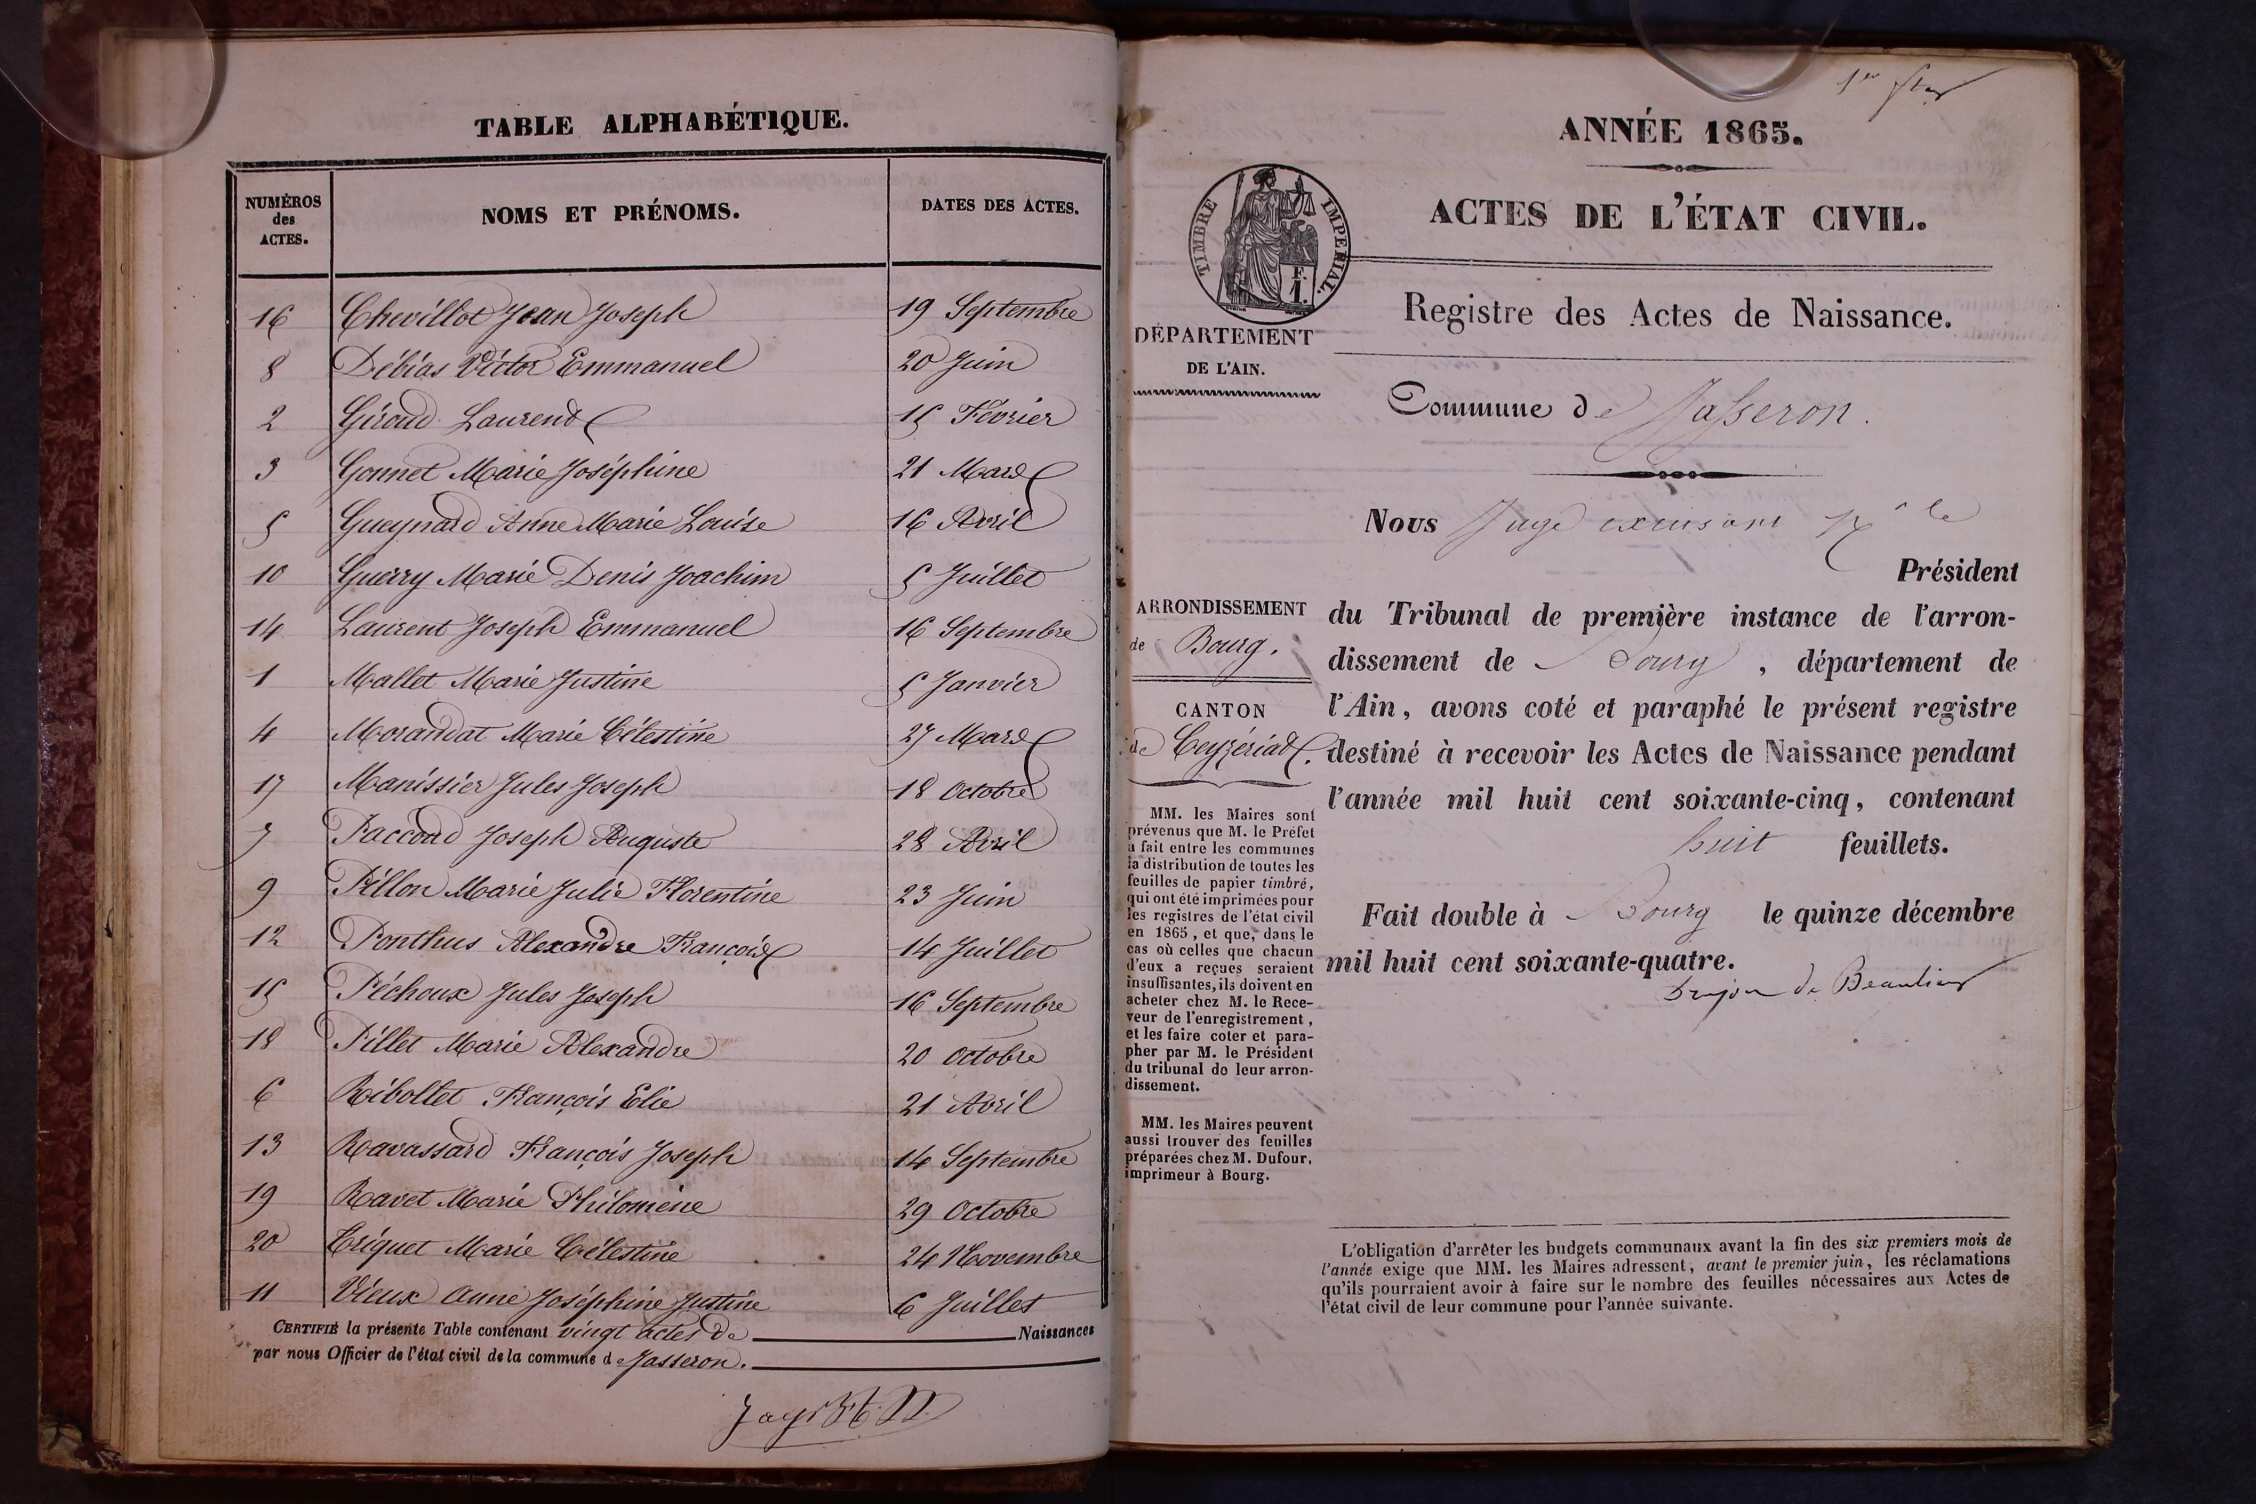 TABLE ALPHABÉTIQUE.
NUMÉROS des ACTES.
NOMS ET PRÉNOMS.
DATES DES ACTES.
16 Chevillot Jean Joseph 19 Septembre
8 Débias Victor Emmanuel 20 Juin
2 Giroud Laurent 15 Février
3 Gonnet Marie Joséphine 21 Mars
5 Gueynard Anne Marie Louise 16 Avril
10 Guerry Marie Denis Joachim 5 Juillet
14 Laurent Joseph Emmanuel 16 Septembre
1 Mallet Marie Justine 5 Janvier
4 Morandat Marie Célestine 27 Mars
17 Manissier Jules Joseph 18 Octobre
7 Paccoud Joseph Auguste 28 Avril
9 Pillon Marie Julie Florentine 23 Juin
12 Ponthus Alexandre François 14 Juillet
15 Péchoux Jules Joseph 16 Septembre
18 Pillet Marie Alexandre 20 Octobre
6 Ribollet François Elie 21 Avril
13 Ravassard François Joseph 14 Septembre
19 Ravet Marie Philomène 29 Octobre
20 Triquet Marie Célestine 24 Novembre
11 Vieux Anne Joséphine Justine 6 Juillet
CERTIFIÉ la présente Table contenant vingt actes de Naissances
par nous Officier de l'état civil de la commune de Jasseron.
1er
ANNÉE 1865.
ACTES DE L'ÉTAT CIVIL.
TIMBRE IMPERIAL.
F.
1.
Registre des Actes de Naissance.
DÉPARTEMENT
DE L'AIN.
Commune de Jasseron.
Nous Juge le
Président
du Tribunal de première instance de l'arron-
dissement de Bourg, département de
l'Ain, avons coté et paraphé le présent registre
destiné à recevoir les Actes de Naissance pendant
l'année mil huit cent soixante-cinq, contenant
huit feuillets.
Fait double à Bourg le quinze décembre
mil huit cent soixante-quatre.
de Beaulieu
ARRONDISSEMENT
de Bourg.
CANTON
de Ceyzériat.
MM. les Maires sont
prévenus que M. le Préfet
a fait entre les communes
la distribution de toutes les
feuilles de papier timbré,
qui ont été imprimées pour
les registres de l'état civil
en 1865, et que, dans le
cas où celles que chacun
d'eux a reçues seraient
insuffisantes, ils doivent en
acheter chez M. le Rece-
veur de l'enregistrement,
et les faire coter et para-
pher par M. le Président
du tribunal de leur arron-
dissement.
MM. les Maires peuvent
aussi trouver des feuilles
préparées chez M. Dufour,
imprimeur à Bourg.
L'obligation d'arrêter les budgets communaux avant la fin des six premiers mois de
l'année exige que MM. les Maires adressent, avant le premier juin, les réclamations
qu'ils pourraient avoir à faire sur le nombre des feuilles nécessaires aux Actes de
l'état civil de leur commune pour l'année suivante.